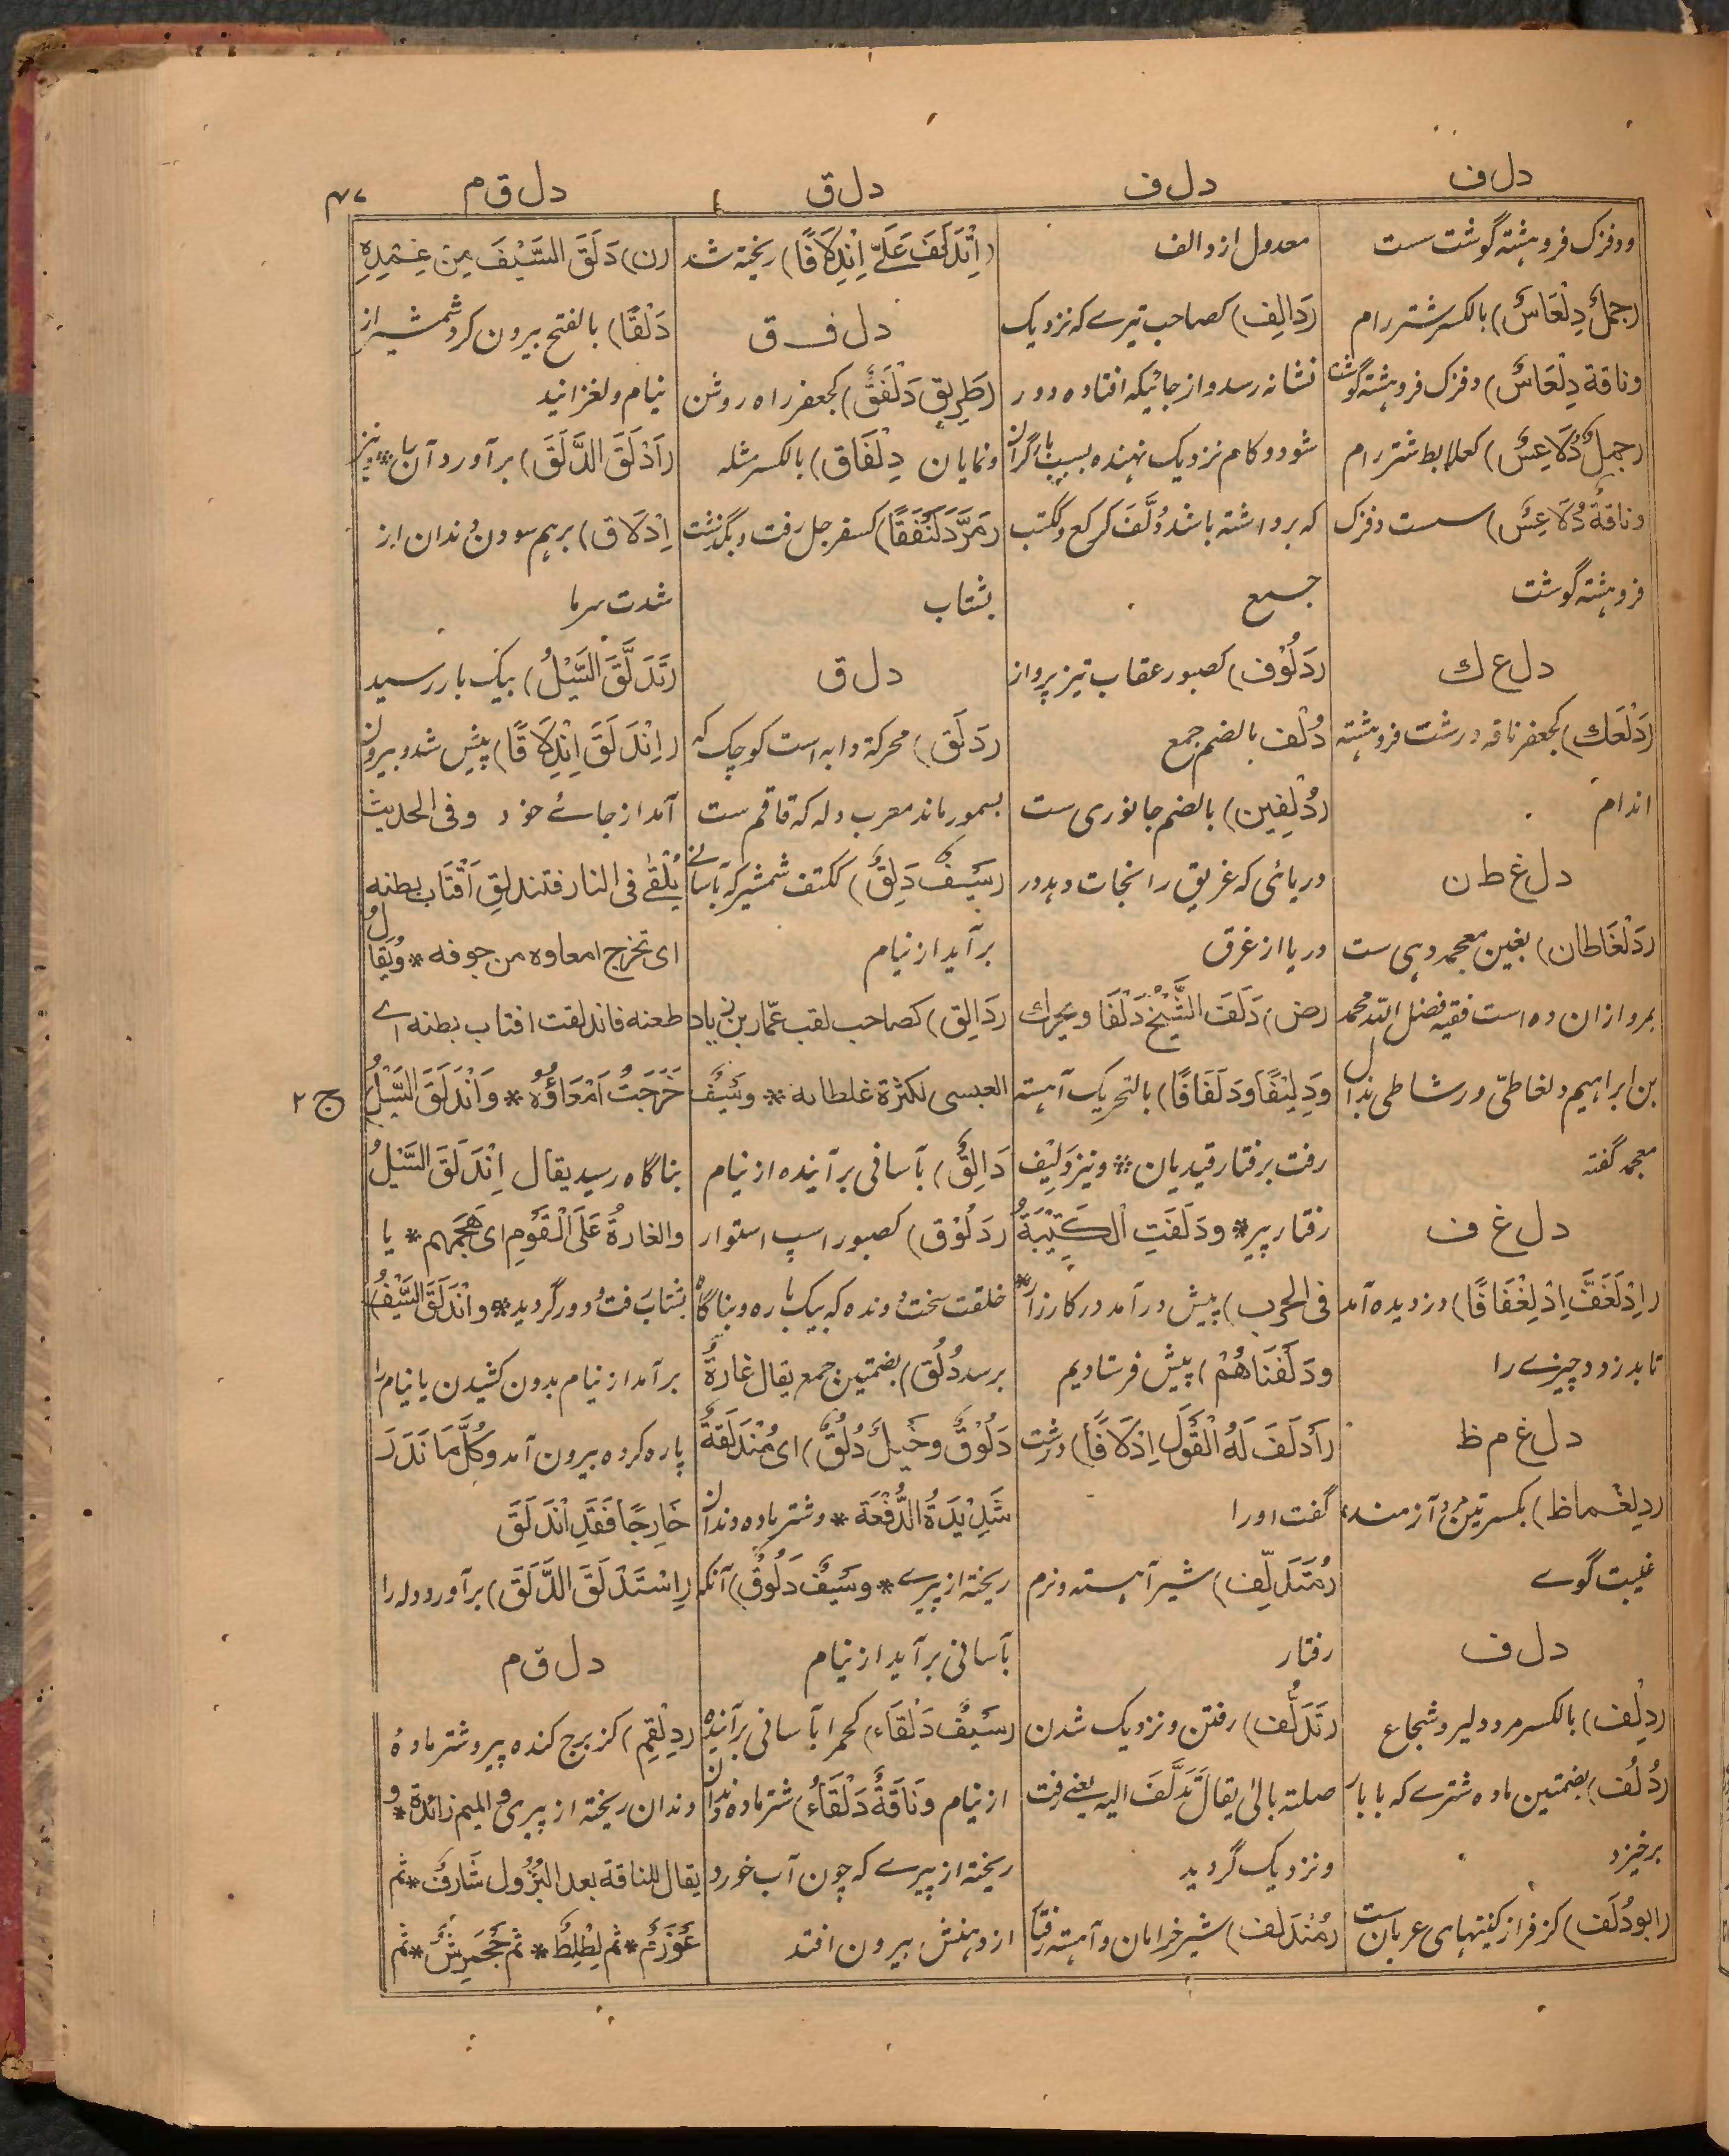 دل ف
دل ف
دل ق
دل ق م
ودفزک فروهشته گوشت سست
(جملٌ دِلْعَاسٌ) بالکسر شتر رام
وناقة دِلْعَاسٌ) دفزک فروهشته گوشت
(جملٌ دُلَاعِسٌ) کعلابط شتر رام
وناقةٌ دُلَاعِسٌ) سست دفزک
فروهشته گوشت
دل ع ك
(دَلْعَك) کجعفر ناقه درشت فروهشته
اندام
دل غ ط ن
(دَلْغَاطان) بغین معجمه دهی ست
بمرو ازان ده است فقیه فضل الله محمد
بن ابراهیم دلغاطی ورشاطی بدال
معجمه گفته
دل غ ف
(اِدْلَغَفَّ اِدْلِغْفَافًا) دزدیده آمد
تا بدزدد چیزے را
دل غ م ظ
(دِلِغْماظ) بکسرتین مرد آزمند
غیبت گوے
دل ف
(دِلْف) بالکسر مرد دلیر و شجاع
(دُلُف) بضمتین ماده شترے که با بار
برخیزد
(ابودُلَف) کزفر از کنیتهای عربان ست
معدول از دالف
(دَالِف) کصاحب تیرے که نزدیک
نشانه رسد و از جائیکه افتاده دور
شود و کام نزدیک نهنده بسبب بار گران
که برداشته باشد دُلَّفَ کرکع وکتب
جمع
(دَلُوْف) کصبور عقاب تیز پرواز
دُلْف بالضم جمع
(دُلْفِین) بالضم جانوری ست
دریائی که غریق را نجات دهد در
دریا از غرق
(ض) دَلَفَ الشَّيْخُ دَلْفًا ویحرك
وَدِلِیْفًا وَدَلَفَانًا) بالتحریک آهسته
رفت برفتار قیدیان * ونیز دَلِیْف
رفتار پیر * ودَلَفَتِ الْكَتِيْبَةُ
فی الحرب) پیش درآمد در کارزار *
ودَلَفْنَاهُمْ) پیش فرستادیم
(أَدلَفَ لَهُ الْقَوْلَ اِدْلَافًا) درشت
گفت اورا
(مُتَدَلِّف) شیر آهسته ونرم
رفتار
(تَدَلُّف) رفتن ونزدیک شدن
صلته بالی یقال تَدَلَّفَ الیه یعنے رفت
ونزدیک گردید
(مُنْدَلِف) شیر خرامان وآهسته رفتار
(اِنْدَلَفَ عَلَيَّ اِنْدِلَافًا) ریخته شد
دل ف ق
(طَرِیق دَلْفَقٌ) کجعفر راه روشن
ونمایان دِلْفَاق) بالکسر مثله
(مَرَّ دَلَنْفَقًا) کسفرجل رفت وبگذشت
بشتاب
دل ق
(دَلَق) محرکة دابه است کوچک که
بسمور ماند معرب دله که قاقم ست
(سَیْفٌ دَلِقٌ) ککتف شمشیر که بآسانی
برآید از نیام
(دَالِق) کصاحب لقب عمّار بن زیاد
العبسی لکثرة غلطاته * وسَیْفٌ
دَالِقٌ) بآسانی برآینده از نیام
(دَلُوْق) کصبور اسپ استوار
خلقت سخت دونده که بیکبار ه وبناگاه
برسد دُلُق) بضمتین جمع یقال غارةٌ
دَلُوْقٌ وخَیلٌ دُلُقٌ) ای مُنْدَلِقَةٌ
شَدِيْدَةُ الدُّفْعَة * وشتر ماده دندان
ریخته از پیرے * وسَیْفٌ دَلُوقٌ) آنکه
بآسانی برآید از نیام
(سَیْفٌ دَلْقَاء) کحمرا بآسانی برآینده
از نیام وَنَاقَةٌ دَلْقَاءُ) شتر ماده دندان
ریخته از پیرے که چون آب خورد
از دهنش بیرون افتد
(ن) دَلَقَ السَّيْفَ مِنْ غِمْدِهِ
دَلْقًا) بالفتح بیرون کرد شمشیر از
نیام ولغزانید
(اَدْلَقَ الدَّلَقَ) برآورد آن را * ونیز
اِدْلَاق) برهم سودن دندان از
شدت سرما
(تَدَلَّقَ السَّيْلُ) بیک بار رسید
(اِنْدَلَقَ اِنْدِلَاقًا) پیش شد وبیرون
آمد از جاے خود وفی الحدیث
یُلْقٰی فی النار فتندلق اَقْتَاب بطنه
ای تخرج امعاوه من جوفه * وُیقَالُ
طعنه فاندلقت اقتاب بطنه اے
خَرَجَتْ اَمْعَاؤُهُ * وَانْدَلَقَ السَّيْلُ
ج ٢
بناگاه رسید یقال اِنْدَلَقَ السَّيْلُ
والغارةُ عَلَى الْقَوْمِ ای هَجَمَهم * یا
بشتاب رفت ودور گردید * وانْدَلَقَ السَّيْفُ)
برآمد از نیام بدون کشیدن یا نیام را
پاره کرده بیرون آمد وکُلُّ مَا نَدَرَ
خَارِجًا فَقَدِ انْدَلَقَ
(اِسْتَدْلَقَ الدَّلَقَ) برآورد دله را
دل ق م
(دِلْقِم) کزبرج کنده پیر وشتر مادهٔ
دندان ریخته از پیری والمیم زائدة * و
یقال للناقة بعد البُزُول شَارِفٌ * ثم
عَوْزَمٌ * ثم لِطْلِطٌ * ثم جَحْمَرِشٌ * ثم